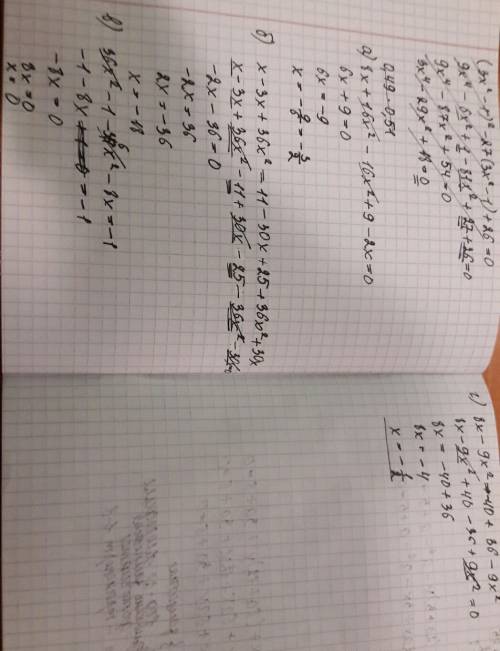 (3x² - 1)² - 27(3x² - 1) + 26 = 0
9x⁴ - 6x² + 1 - 81x² + 27 + 26 = 0
9x⁴ - 87x² + 54 = 0
3x⁴ - 29x² + 18 = 0
9,49 - 9,51
а) 8x + 16x² - 16x² + 9 - 2x = 0
6x + 9 = 0
6x = -9
x = -9/6 = -3/2
б) x - 3x + 36x² = 11 - 30x + 25 + 36x² + 30x
x - 3x + 36x² - 11 + 30x - 25 - 36x² - 30x
-2x - 36 = 0
-2x = 36
2x = -36
x = -18
в) 36x² - 1 - 36x² - 8x = -1
-1 - 8x = -1
-8x = 0
8x = 0
x = 0
г) 8x - 9x² = -40 + 36 - 9x²
8x - 9x² + 40 - 36 + 9x² = 0
8x = -40 + 36
8x = -4
x = -1/2